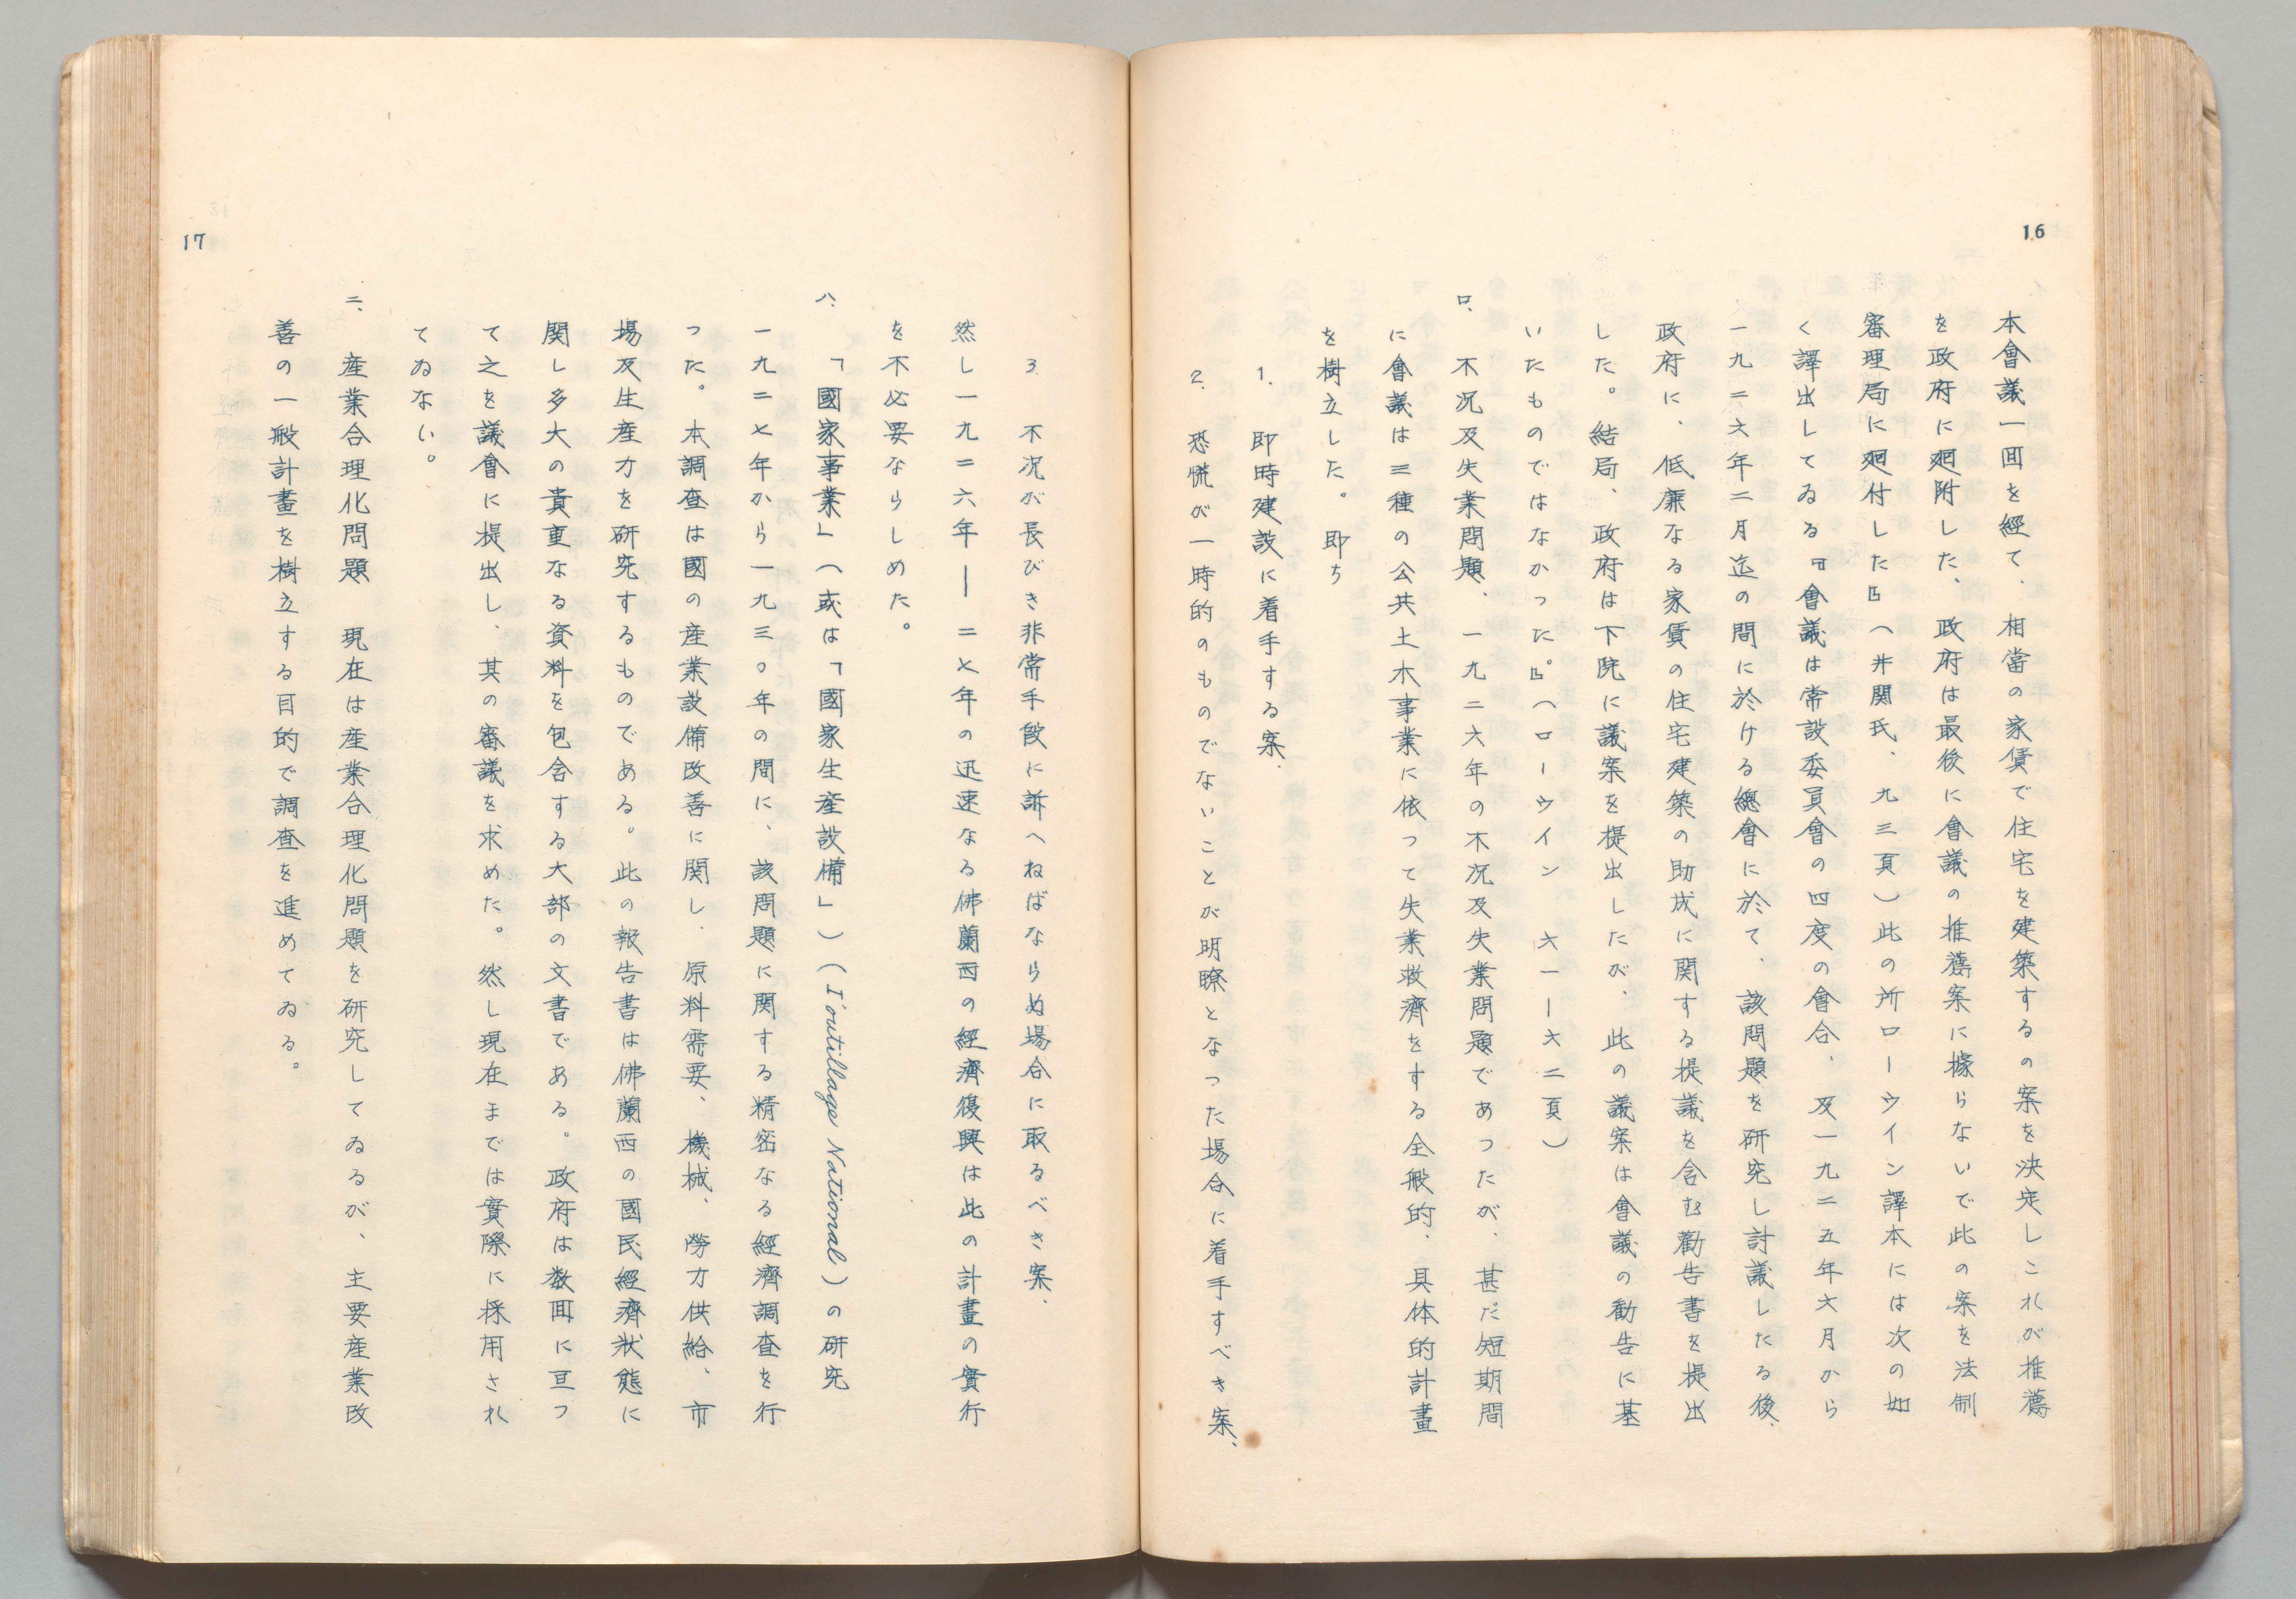 16
本會議一回を經て、相當の家賃で住宅を建築するの案を決定しこれが推薦
を政府に廻附した、政府は最後に會議の推薦案に據らないで此の案を法制
審理局に廻付した』（井関氏、九三頁）此の所ローウイン譯本には次の如
く譯出してゐる『會議は常設委員會の四度の會合、及一九二五年六月から
一九二六年二月迄の間に於ける總會に於て、該問題を研究し討議したる後、
政府に、低廉なる家賃の住宅建築の助成に関する提議を含む勸告書を提出
した。結局、政府は下院に議案を提出したが、此の議案は會議の勸告に基
いたものではなかった。』（ローウイン 六一―六二頁）
ロ、不況及失業問題、一九二六年の不況及失業問題であつたが、甚だ短期間
に會議は三種の公共土木事業に依つて失業救濟をする全般的、具体的計畫
を樹立した。即ち
1. 即時建設に着手する案、
2. 恐慌が一時的のものでないことが明瞭となった場合に着手すべき案、
3. 不況が長びき非常手段に訴へねばならぬ場合に取るべき案、
然し一九二六年―二七年の迅速なる佛蘭西の經濟復興は此の計畫の實行
を不必要ならしめた。
ハ、「國家事業」（或は「國家生産設備」）（I'outillage National）の研究
一九二七年から一九三〇年の間に、該問題に関する精密なる經濟調査を行
つた。本調査は國の産業設備改善に関し、原料需要、機械、勞力供給、市
場及生産力を研究するものである。此の報告書は佛蘭西の國民經濟狀態に
関し多大の貴重なる資料を包含する大部の文書である。政府は数回に亘つ
て之を議會に提出し、其の審議を求めた。然し現在までは實際に採用され
てゐない。
ニ、産業合理化問題 現在は産業合理化問題を研究してゐるが、主要産業改
善の一般計畫を樹立する目的で調査を進めてゐる。
17